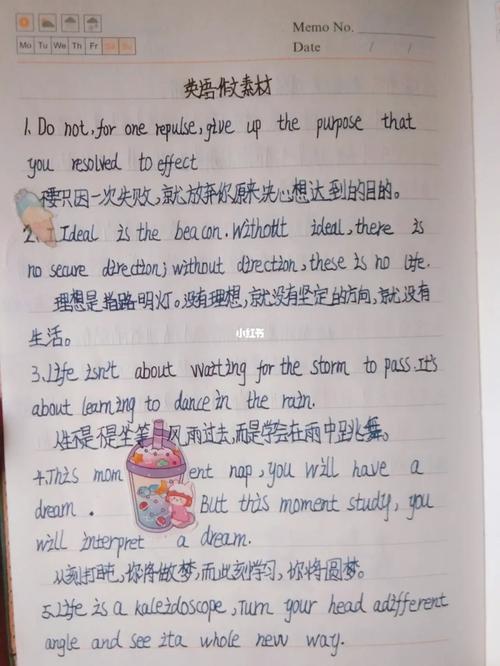 Memo No.
Mo Tu We Th Fr Sa Su
Date / /
英语作文素材
1. Do not, for one repulse, give up the purpose that
you resolved to effect
不要只因一次失败,就放弃你原来决心想达到的目的。
2. Ideal is the beacon. Without ideal, there is
no secure direction; without direction, these is no life.
理想是指路明灯。没有理想,就没有坚定的方向,就没有
生活。
小红书
3. Life isn't about waiting for the storm to pass. It's
about learning to dance in the rain.
人生不是坐等 风雨过去,而是学会在雨中跳舞。
4. This mom ent nap, you will have a
dream. But this moment study, you
will interpret a dream.
刻打盹,你将做梦,而此刻学习,你将圆梦。
5. Life is a kaleidoscope, turn your head a different
angle and see it a whole new way.